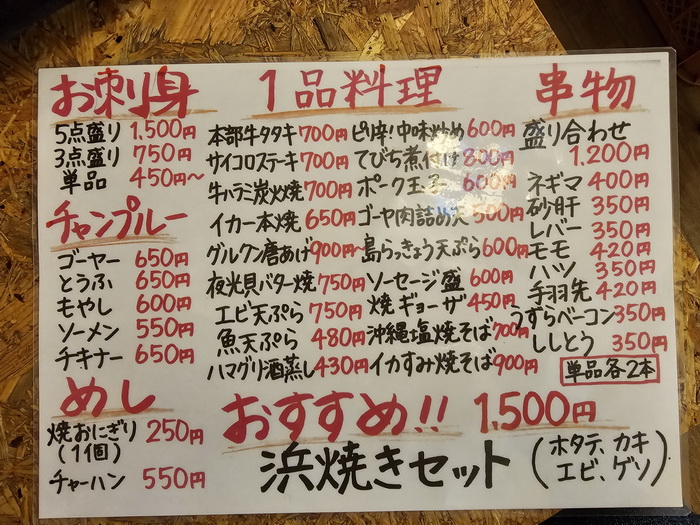 お刺身
5点盛り 1,500円
3点盛り 750円
単品 450円〜
チャンプルー
ゴーヤー 650円
とうふ 650円
もやし 600円
ソーメン 550円
チキナー 650円
めし
焼おにぎり 250円
(1個)
チャーハン 550円
1品料理
本部牛タタキ 700円
サイコロステーキ 700円
牛ハラミ炭火焼 700円
イカ一本焼 650円
グルクン唐あげ 900円〜
夜光貝バター焼 750円
エビ天ぷら 750円
魚天ぷら 480円
ハマグリ酒蒸し 430円
ピリ辛!中味炒め 600円
てびち煮付け 800円
ポーク玉子 600円
ゴーヤ肉詰め天 500円
島らっきょう天ぷら 600円
ソーセージ盛 600円
焼ギョーザ 450円
沖縄塩焼そば 700円
イカすみ焼そば 900円
串物
盛り合わせ
1,200円
ネギマ 400円
砂肝 350円
レバー 350円
モモ 420円
ハツ 350円
手羽先 420円
うずらベーコン 350円
ししとう 350円
単品各2本
おすすめ!! 1,500円
浜焼きセット (ホタテ、カキ
エビ、ゲソ)